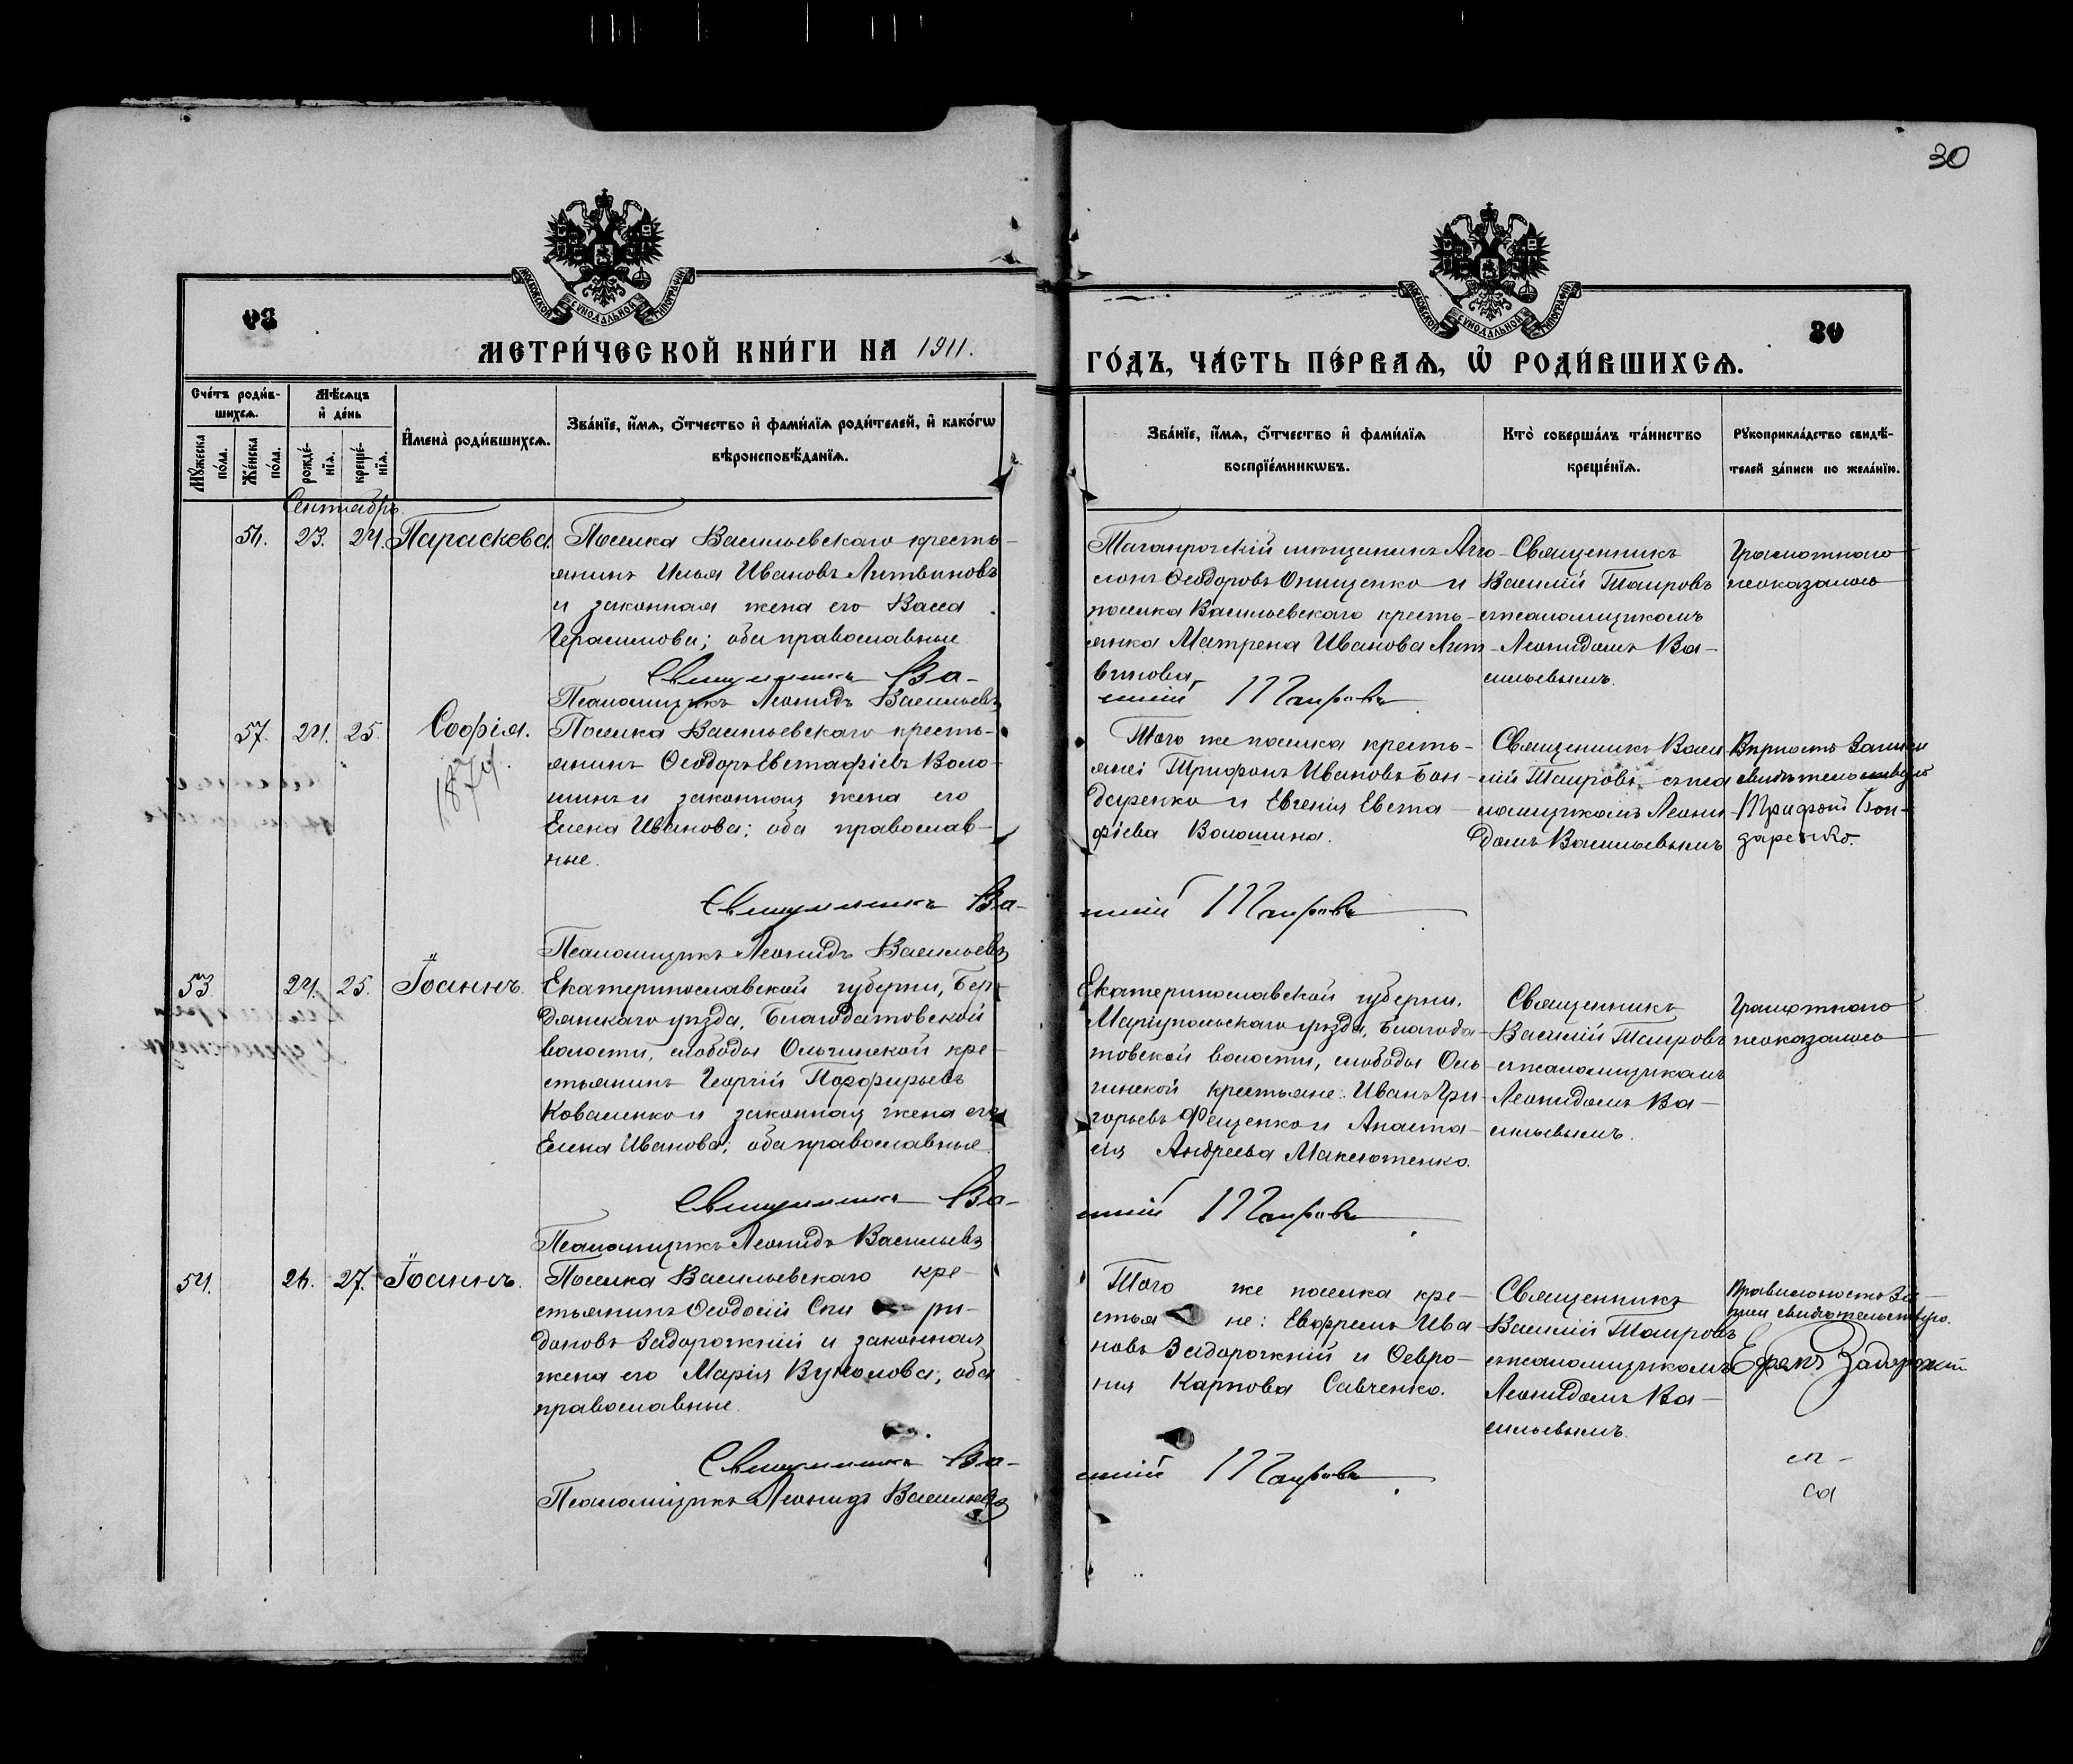 30
МОСКОВСКОЙ СѴНОДАЛЬНОЙ ТИПОГРАФІИ
МОСКОВСКОЙ СѴНОДАЛЬНОЙ ТИПОГРАФІИ
МЕТРИ́ЧЕСКОЙ КНИ́ГИ НА 1911.
ГО́ДЪ, ЧА́СТЬ ПЕ́РВАѦ, Ѡ҆ РОДИ́ВШИХСѦ.
30
Сче́тъ роди́в-
шихсѧ.
Мѣ́сѧцъ
и҆ де́нь
Мꙋ́жеска
по́ла.
Же́нска
по́ла.
рожде́-
нїѧ.
креще́-
нїѧ.
И҆мена̀ роди́вшихсѧ.
Зва́нїе, и҆́мѧ, ѻ҆́тчество и҆ фами́лїѧ роди́телей, и҆ како́гѡ
вѣроисповѣ́данїѧ.
Зва́нїе, и҆́мѧ, ѻ҆́тчество и҆ фами́лїѧ
воспрїе́мникѡвъ.
Кто̀ соверша́лъ та́инство
креще́нїѧ.
Рꙋкоприкла́дство свидѣ́-
телей за́писи по жела́нїю.
Сентябрь.
56. 23. 24. Параскева.
Поселка Васильевскаго кресть-
янинъ Илья Ивановъ Литвиновъ
и законная жена его Васса
Герасимова; оба православные
Священникъ Ва-
Псаломщикъ Леонидъ Васильевъ
Таганрогскій мещанинъ
Ѳеодоровъ Онищенко и
поселка Васильевскаго кресть-
янка Матрена Иванова Лит-
винова,
силій Таировъ
Священникъ
Василій Таировъ
съ псаломщикомъ
Леонидомъ Ва-
сильевымъ.
Грамотнаго
неоказалось
57. 24. 25. Софія.
1874.
Поселка Васильевскаго кресть-
янинъ Ѳеодоръ Евстафіевъ Воло-
шинъ и законная жена его
Елена Иванова; оба православ-
ные.
Священникъ Ва-
Псаломщикъ Леонидъ Васильевъ
Того же поселка кресть-
яне: Трифонъ Ивановъ Бон-
даренко и Евгенія Евста-
фіева Волошина.
силій Таировъ
Священникъ Васи-
лій Таировъ съ пса-
ломщикомъ Леони-
домъ Васильевымъ
Верность записи
свидетельствую
Трифон Бон-
даренко.
53. 24. 25. Іоаннъ.
Екатеринославской губерніи, Бер-
дянскаго уѣзда, Благодатовской
волости, слободы Ольгинской кре-
стьянинъ Георгій Порфирьевъ
Коваленко и законная жена его
Елена Иванова; оба православные.
Священникъ Ва-
Псаломщикъ Леонидъ Васильевъ
Екатеринославской губерніи,
Маріупольскаго уѣзда, Благода-
товской волости, слободы Оль-
гинской крестьяне: Иванъ Гри-
горьевъ Фещенко и Анаста-
сія Андреева Максютенко.
силій Таировъ
Священникъ
Василій Таировъ
съ псаломщикомъ
Леонидомъ Ва-
сильевымъ.
Грамотнаго
неоказалось
54. 26. 27. Іоаннъ.
Поселка Васильевскаго кре-
стьянинъ Ѳеодосій Спи ри-
доновъ Задорожній и законная
жена его Марія Вуколова; оба
православные.
Священникъ Ва-
Псаломщикъ Леонидъ Васильевъ
Того же поселка кре-
стья не: Евфремъ Ива-
новъ Задорожній и Ѳевро-
нія Карпова Савченко.
силій Таировъ
Священникъ
Василій Таировъ
съ псаломщикомъ
Леонидомъ Ва-
сильевымъ.
Правильность за-
писи свидетельствую.
Ефремъ Задорожній